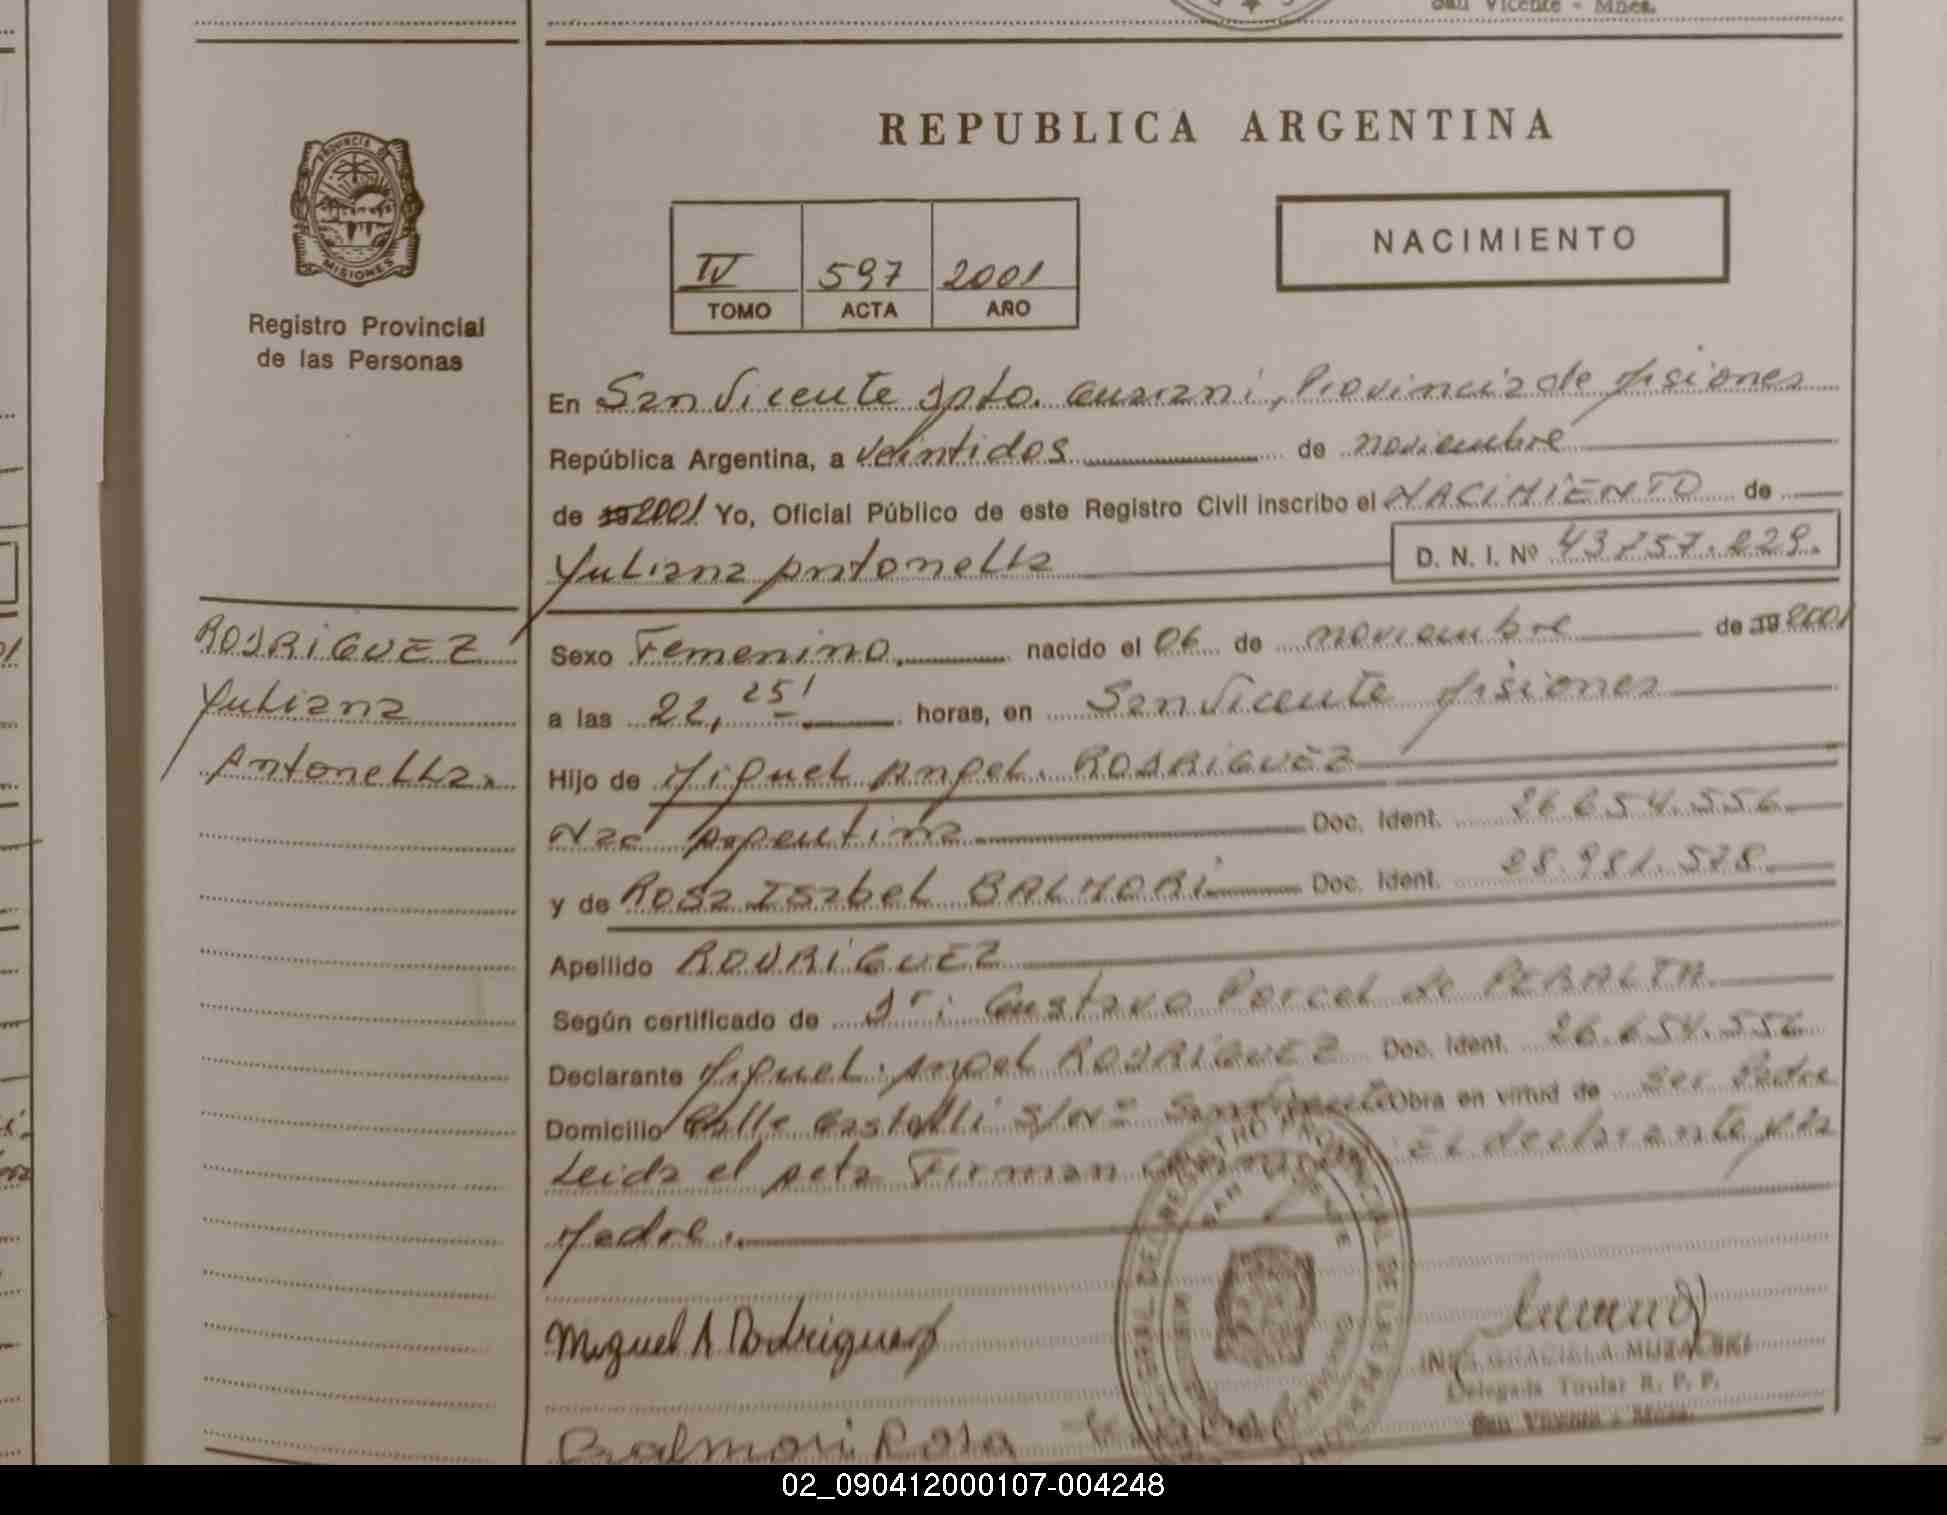 San Vicente - Mnes.
REPUBLICA ARGENTINA
PROVINCIA DE
MISIONES
Registro Provincial
de las Personas
IV 597 2001
TOMO ACTA AÑO
NACIMIENTO
En San Vicente Dpto. Guarani, Provincia de Misiones
República Argentina, a veintidos de noviembre
de 19 2001 Yo, Oficial Público de este Registro Civil inscribo el NACIMIENTO de
Yuliana Antonella D. N. I. Nº 43.757.229.
RODRIGUEZ
Yuliana
Antonella.
Sexo Femenino, nacido el 06 de noviembre de 19 2001
a las 22, 25' horas, en San Vicente Misiones
Hijo de Miguel Angel. RODRIGUEZ
Nac Argentina Doc. Ident. 26.654.556.
y de Rosa Isabel BALMORI Doc. Ident. 28.981.578.
Apellido RODRIGUEZ
Según certificado de Dr: Gustavo Porcel de PERALTA.
Declarante Miguel Angel RODRIGUEZ Doc. Ident. 26.654.556
Domicilio Calle Castelli s/nº San Vicente Obra en virtud de Ser Padre
Leida el acta Firman El declarante y la
Madre.
Miguel A Rodriguez
REGISTRO PROVINCIAL DE LAS PERSONAS
SAN VICENTE
INES GRACIELA
Delegada Titular R. P. P.
San Vicente - Mnes.
Balmori Rosa
02_090412000107-004248